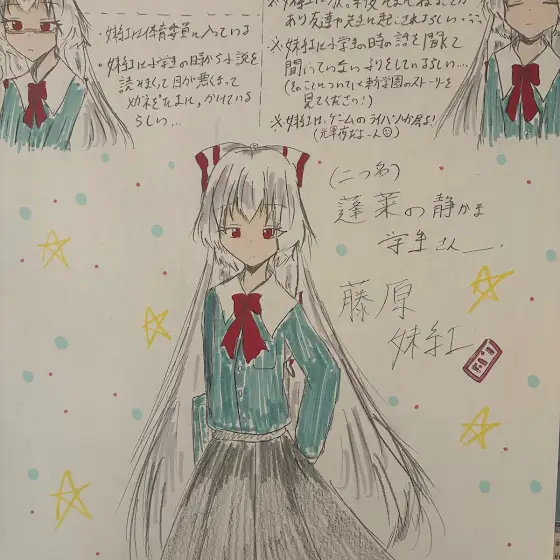 ・妹紅は体育委員に入っている
・妹紅は小学生の時から小説を
読みまくって目が悪くなって
メガネをたまに、かけている
らしい…
あり友達や先生に起こされるらしい…
※妹紅に小学生の時の話を聞くと
聞いていないふりをしているらしい…
(そのことについては 学園のストーリーを
見てください!)
※妹紅は、ゲームのライバルが居る!
(元 夜だよーん)
(二つ名)
蓬莱の静かな
学生さん
藤原
妹紅